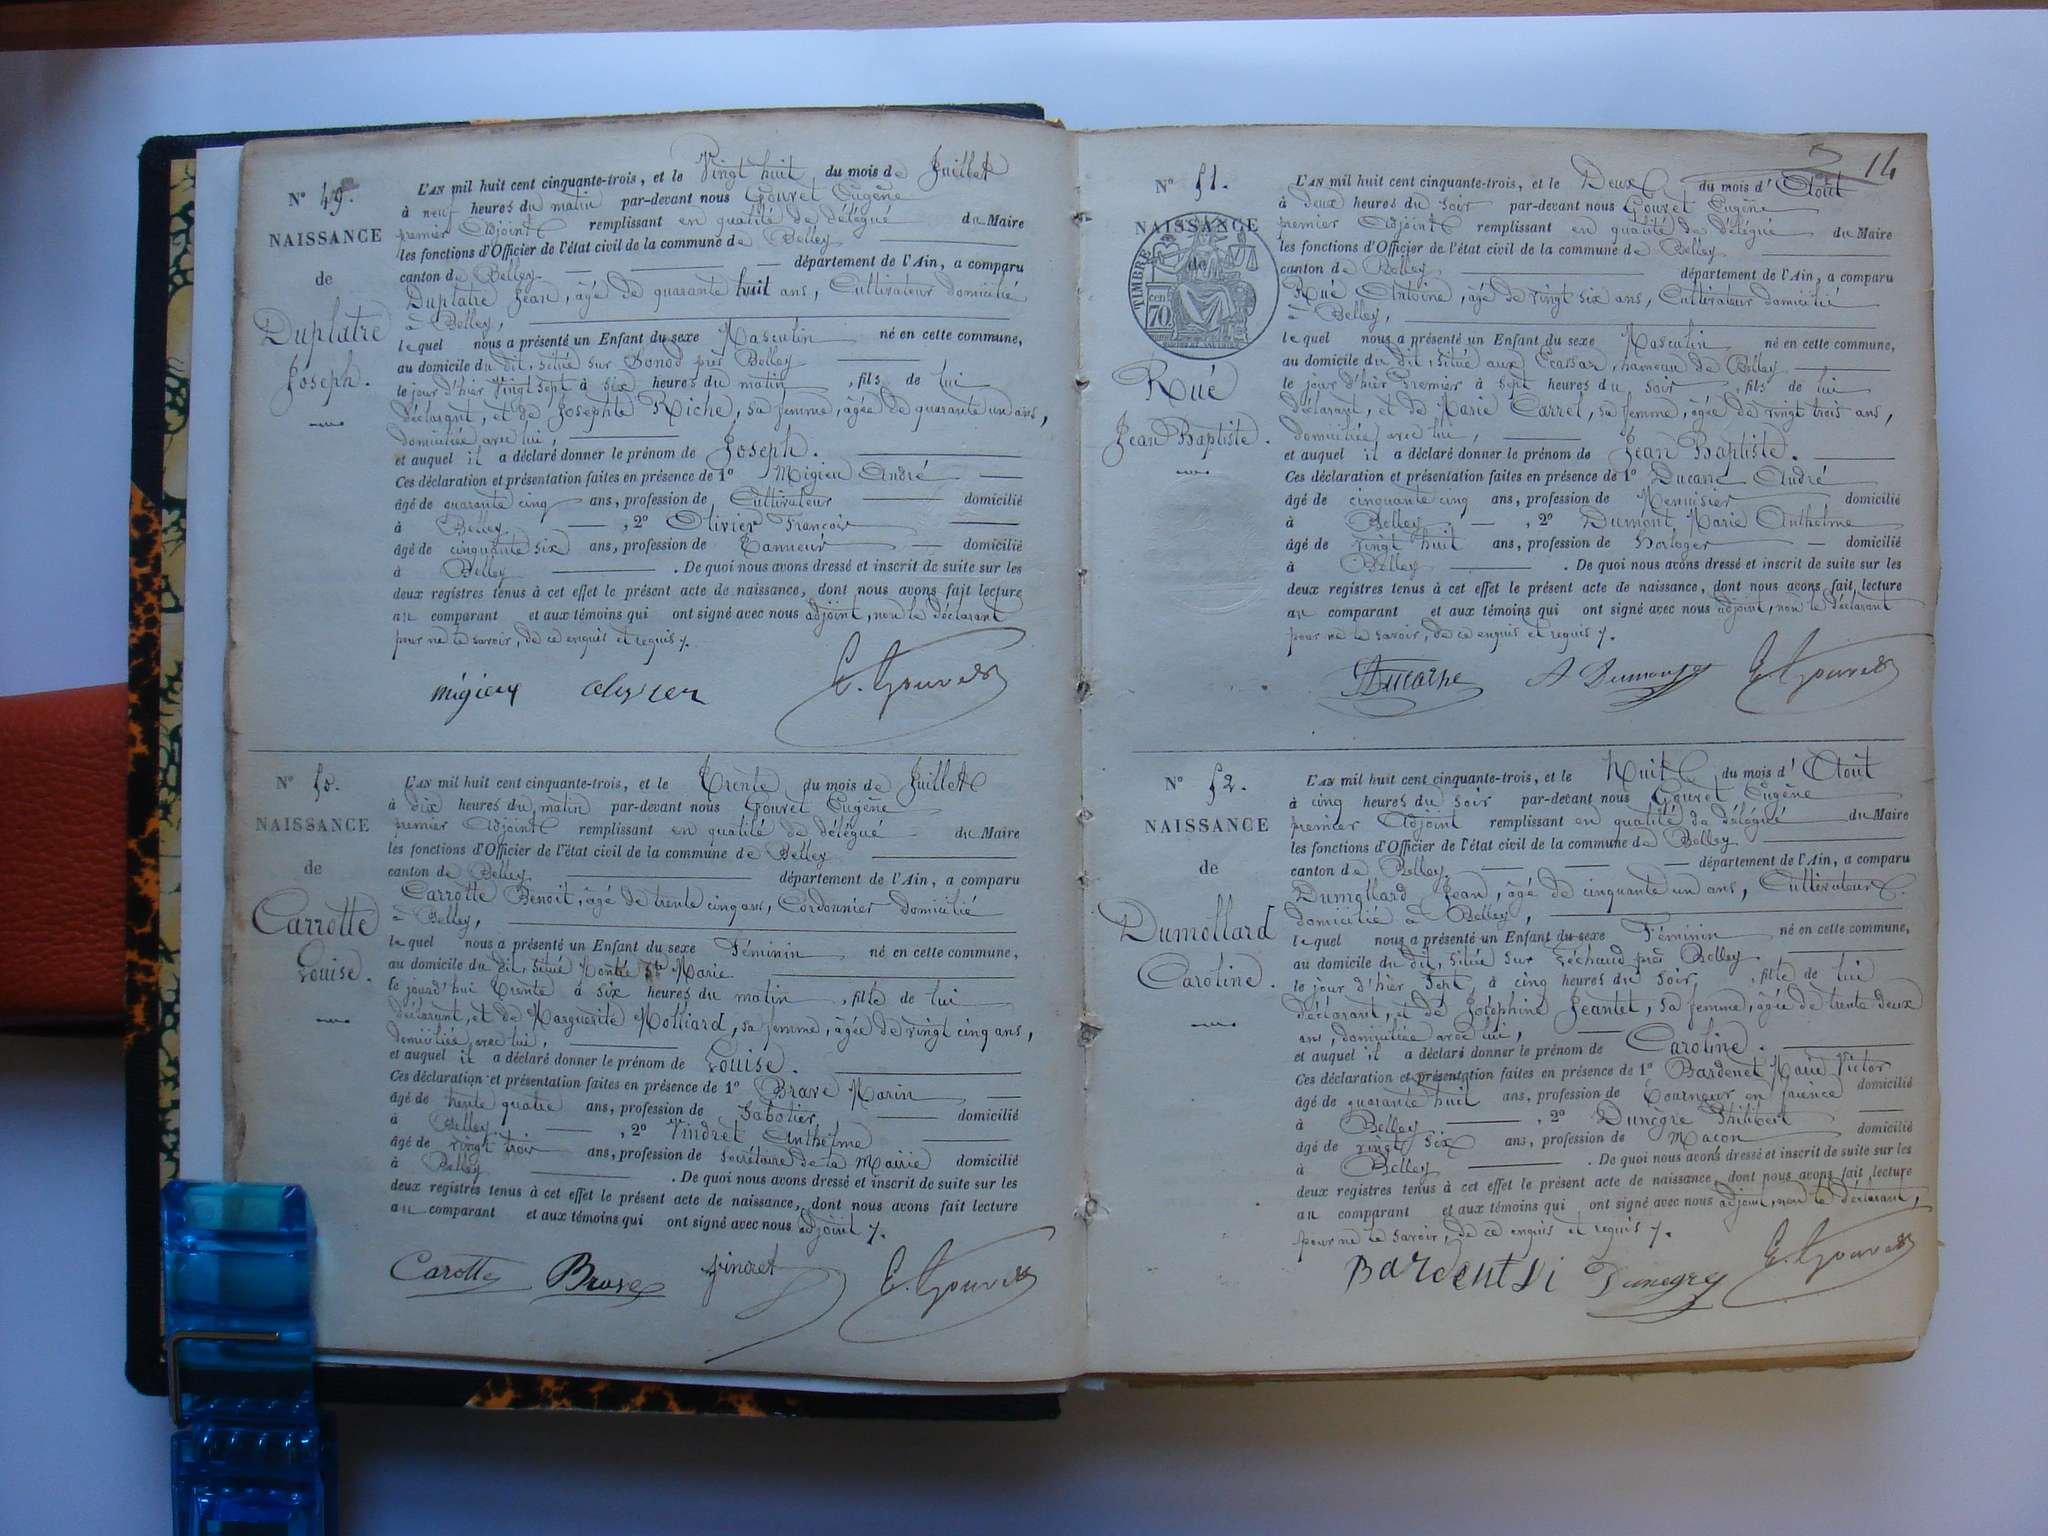 N° 49.
NAISSANCE
de
Duplatre
Joseph.
L'AN mil huit cent cinquante-trois, et le Vingt huit du mois de Juillet
à neuf heures du matin par-devant nous Gouvet Eugène
premier Adjoint remplissant en qualité de délégué du Maire
les fonctions d'Officier de l'état civil de la commune de Belley
canton de Belley département de l'Ain, a comparu
Duplatre Jean, âgé de quarante huit ans, Cultivateur domicilié
à Belley,
lequel nous a présenté un Enfant du sexe Masculin né en cette commune,
au domicile du dit, situé sur Bonod près Belley
le jour d'hier Vingt sept à six heures du matin, fils de lui
déclarant, et de Josephte Riche, sa femme, âgée de quarante un ans,
domiciliée avec lui,
et auquel il a déclaré donner le prénom de Joseph.
Ces déclaration et présentation faites en présence de 1° Migieu André
âgé de quarante cinq ans, profession de Cultivateur domicilié
à Belley, 2° Olivier François
âgé de cinquante six ans, profession de Tanneur domicilié
à Belley. De quoi nous avons dressé et inscrit de suite sur les
deux registres tenus à cet effet le présent acte de naissance, dont nous avons fait lecture
au comparant et aux témoins qui ont signé avec nous adjoint, non le déclarant
pour ne le savoir, de ce enquis et requis.
migieu E. Gouvet
N° 50.
NAISSANCE
de
Carrotte
Louise.
L'AN mil huit cent cinquante-trois, et le Trente du mois de Juillet
à dix heures du matin par-devant nous Gouvet Eugène
premier Adjoint remplissant en qualité de délégué du Maire
les fonctions d'Officier de l'état civil de la commune de Belley
canton de Belley département de l'Ain, a comparu
Carrotte Benoit, âgé de trente cinq ans, Cordonnier domicilié
à Belley,
lequel nous a présenté un Enfant du sexe Féminin né en cette commune,
au domicile du dit, situé Montée Ste Marie
le jourd'hui Trente à six heures du matin, fille de lui
déclarant, et de Marguerite Molliard, sa femme, âgée de vingt cinq ans,
domiciliée avec lui,
et auquel il a déclaré donner le prénom de Louise.
Ces déclaration et présentation faites en présence de 1° Brave Marin
âgé de trente quatre ans, profession de Sabotier domicilié
à Belley, 2° Vindret Anthelme
âgé de vingt trois ans, profession de Secrétaire de la Mairie domicilié
à Belley. De quoi nous avons dressé et inscrit de suite sur les
deux registres tenus à cet effet le présent acte de naissance, dont nous avons fait lecture
au comparant et aux témoins qui ont signé avec nous adjoint.
Carotte Brave Vindret E. Gouvet
14
N° 51.
NAISSANCE
de
TIMBRE
70 cen
Rué
Jean Baptiste.
L'AN mil huit cent cinquante-trois, et le Deux du mois d'Août
à deux heures du soir par-devant nous Gouvet Eugène
premier Adjoint remplissant en qualité de délégué du Maire
les fonctions d'Officier de l'état civil de la commune de Belley
canton de Belley département de l'Ain, a comparu
Rué Antoine, âgé de vingt six ans, Cultivateur domicilié
à Belley,
lequel nous a présenté un Enfant du sexe Masculin né en cette commune,
au domicile du dit, situé aux Ecassaz, hameau de Belley
le jour d'hier Premier à sept heures du soir, fils de lui
déclarant, et de Marie Carrel, sa femme, âgée de vingt trois ans,
domiciliée avec lui,
et auquel il a déclaré donner le prénom de Jean Baptiste.
Ces déclaration et présentation faites en présence de 1° Ducarre André
âgé de cinquante cinq ans, profession de Menuisier domicilié
à Belley, 2° Dumont Marie Anthelme
âgé de vingt huit ans, profession de Horloger domicilié
à Belley. De quoi nous avons dressé et inscrit de suite sur les
deux registres tenus à cet effet le présent acte de naissance, dont nous avons fait lecture
au comparant et aux témoins qui ont signé avec nous adjoint, non le déclarant
pour ne le savoir, de ce enquis et requis.
A Dumont E. Gouvet
N° 52.
NAISSANCE
de
Dumollard
Caroline.
L'AN mil huit cent cinquante-trois, et le Huit du mois d'Août
à cinq heures du soir par-devant nous Gouvet Eugène
premier Adjoint remplissant en qualité de délégué du Maire
les fonctions d'Officier de l'état civil de la commune de Belley
canton de Belley département de l'Ain, a comparu
Dumollard Jean, âgé de cinquante un ans, Cultivateur
domicilié à Belley,
lequel nous a présenté un Enfant du sexe Féminin né en cette commune,
au domicile du dit, situé sur Léchaud près Belley
le jour d'hier Sept, à cinq heures du soir, fille de lui
déclarant, et de Joséphine Jeantet, sa femme, âgée de trente deux
ans, domiciliée avec lui,
et auquel il a déclaré donner le prénom de Caroline.
Ces déclaration et présentation faites en présence de 1° Bardenet Marie Victor
âgé de quarante huit ans, profession de Tourneur en faïence domicilié
à Belley, 2° Dunègre Philibert
âgé de vingt six ans, profession de Maçon domicilié
à Belley. De quoi nous avons dressé et inscrit de suite sur les
deux registres tenus à cet effet le présent acte de naissance, dont nous avons fait lecture
au comparant et aux témoins qui ont signé avec nous adjoint, non le déclarant,
pour ne le savoir, de ce enquis et requis.
E. Gouvet